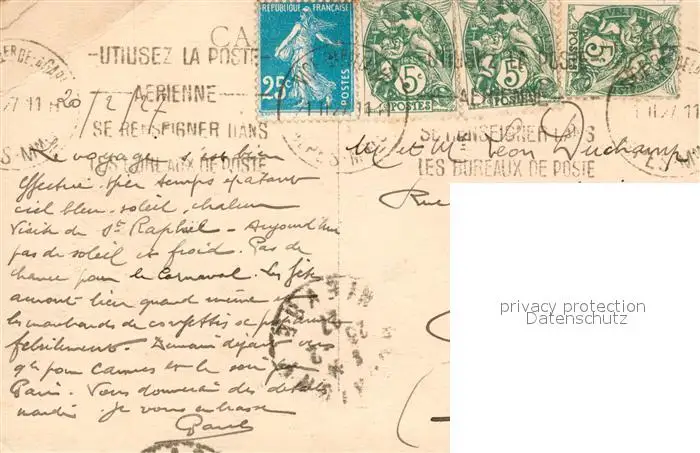 CA
REPUBLIQUE FRANÇAISE
25c
POSTES
5c
POSTES
5c
5c
UTILISEZ LA POSTE
AERIENNE
SE RENSEIGNER DANS
LES BUREAUX DE POSTE
SE RENSEIGNER DANS
LES BUREAUX DE POSTE
20/2/27
M. et Me Léon Duchamp
Rue
Le voyage s'est bien
effectué hier temps épatant
ciel bleu. soleil, chaleur
Visite de St Raphaël - Aujourd'hui
pas de soleil et froid. Pas de
chance pour le Carnaval. Les fêtes
auront lieu quand même et
les marchands de confettis se préparent
fébrilement. Demain départ
pour Cannes et le soir
Paris. Vous donnerai des détails
mardi. je vous embrasse
Paul
privacy protection
Datenschutz